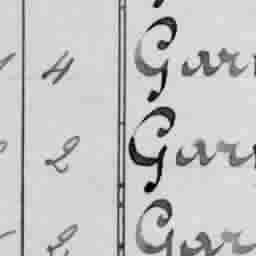 4 Gar
2 Gar
2 Gar